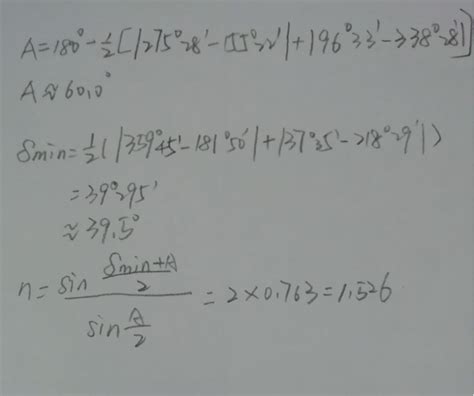 A=180°-½[|275°28′-155°22′|+|96°33′-338°28′|]
A≈60.0°
δmin=½(|359°45′-181°50′|+|37°35′-218°29′|)
=39°295′
≈39.5°
n= sin (δmin+A)/2 / sin A/2 = 2×0.763=1.526